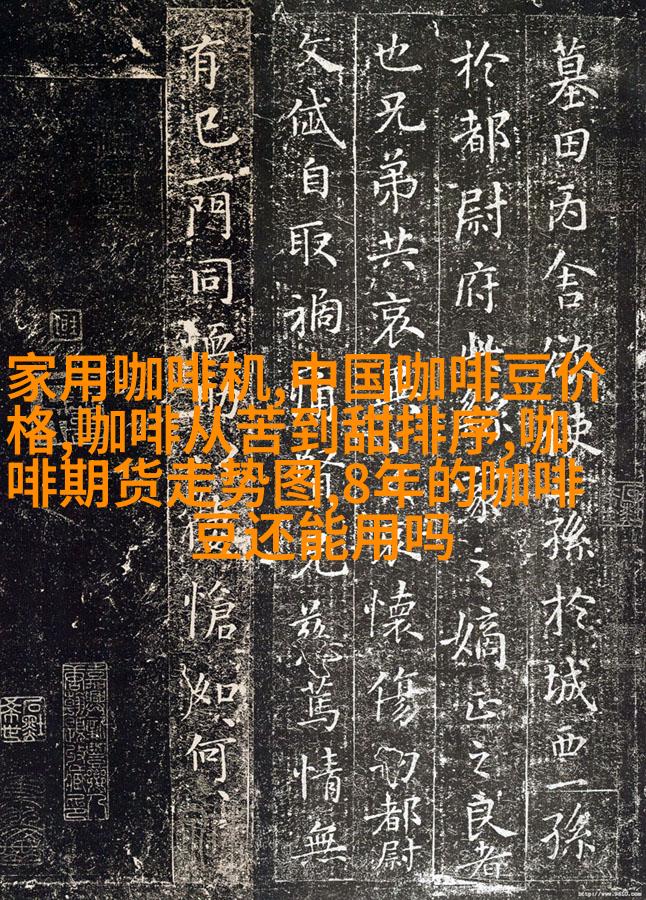 墓田丙舍欲使孫於城西一孫
於都尉府此繇家之嫡正之良者
也兄弟共哀懷傷切都尉
文岱自取禍痛賢兄慈篤情無
有已一門同恤助愴如何、、
家用咖啡机,中国咖啡豆价
格,咖啡从苦到甜排序,咖
啡期货走势图,8年的咖啡
豆还能用吗
http://www.9610.com